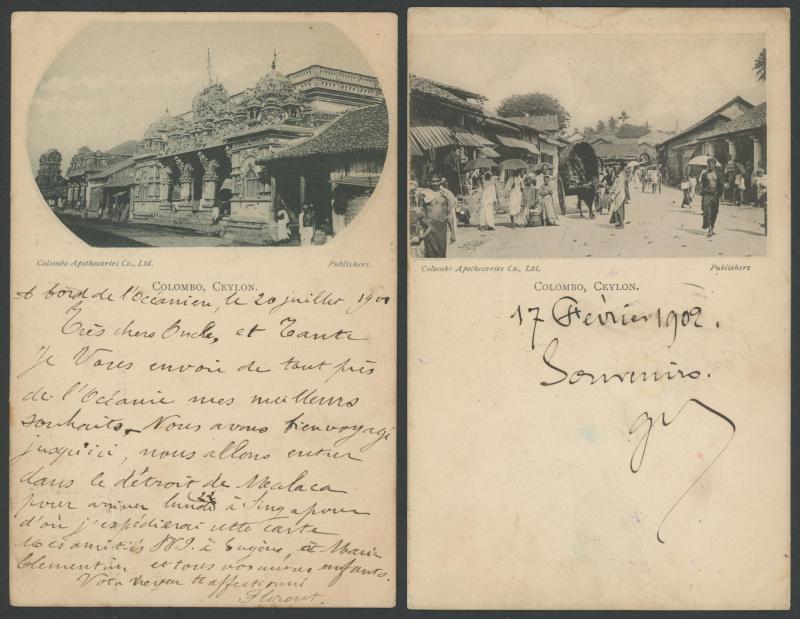 Colombo Apothecaries Co., Ltd. Publishers.
COLOMBO, CEYLON.
A bord de l'Océanien, le 20 juillet 190
Très chers Oncle, et Tante
Je Vous envoie de tout près
de l'Océanie mes meilleurs
souhaits. Nous avons bien voyagé
jusqu'ici, nous allons entrer
dans le détroit de Malaca
pour arriver lundi à Singapour
d'où j'expédierai cette carte
Mes amitiés à Eugène, et Marie
Clementin et tous vos autres enfants.
Votre neveu affectionné
Florent.
Colombo Apothecaries Co., Ltd. Publishers
COLOMBO, CEYLON.
17 Février 1902.
Souvenirs.